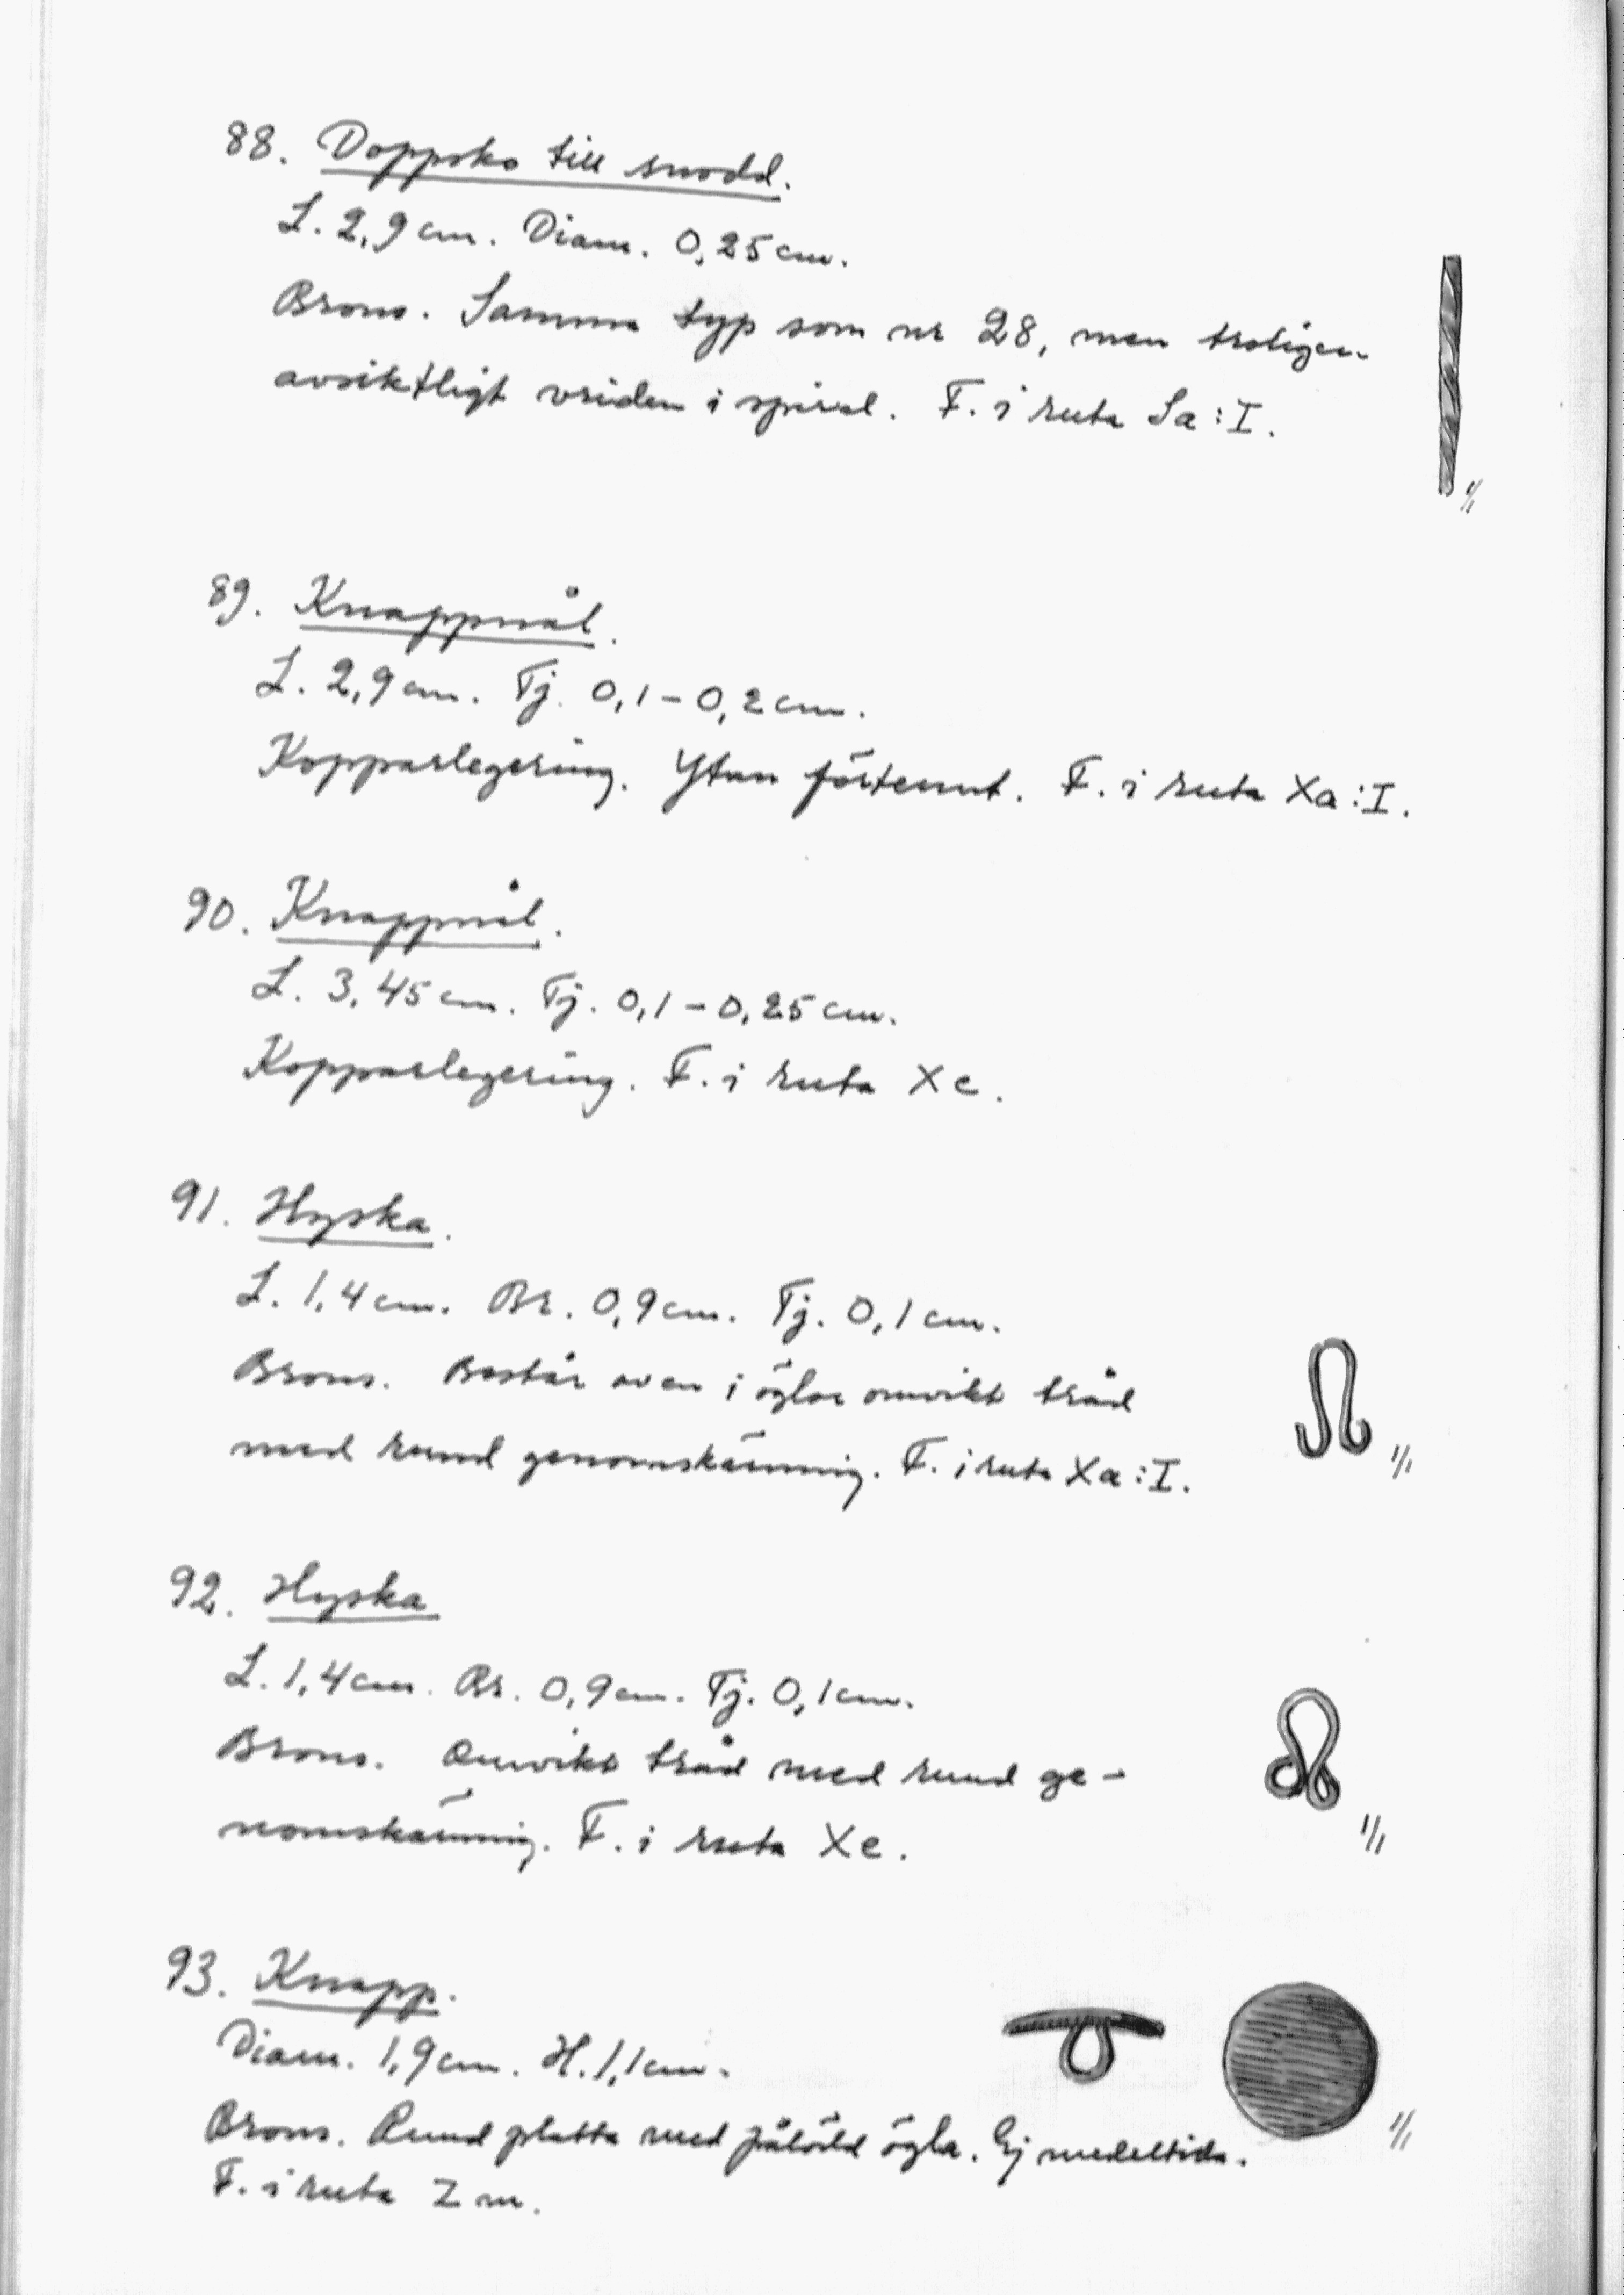 88. Doppsko till snodd.
L. 2,9 cm. Diam. 0,25 cm.
Brons. Samma typ som nr 28, men troligen
avsiktligt vriden i spiral. F. i ruta Sa:I.
1/1
89. Knappnål.
L. 2,9 cm. Tj. 0,1-0,2 cm.
Kopparlegering. Ytan förtennt. F. i ruta Xa:I.
90. Knappnål.
L. 3,45 cm. Tj. 0,1-0,25 cm.
Kopparlegering. F. i ruta Xe.
91. Hyska.
L. 1,4 cm. Br. 0,9 cm. Tj. 0,1 cm.
Brons. Består av en i öglor omvikt tråd
med rund genomskärning. F. i ruta Xa:I.
1/1
92. Hyska
L. 1,4 cm. Br. 0,9 cm. Tj. 0,1 cm.
Brons. Omvikt tråd med rund ge-
nomskärning. F. i ruta Xe.
1/1
93. Knapp.
Diam. 1,9 cm. H. 1,1 cm.
Brons. Rund platta med pålödd ögla. Ej medeltida.
F. i ruta Zm.
1/1